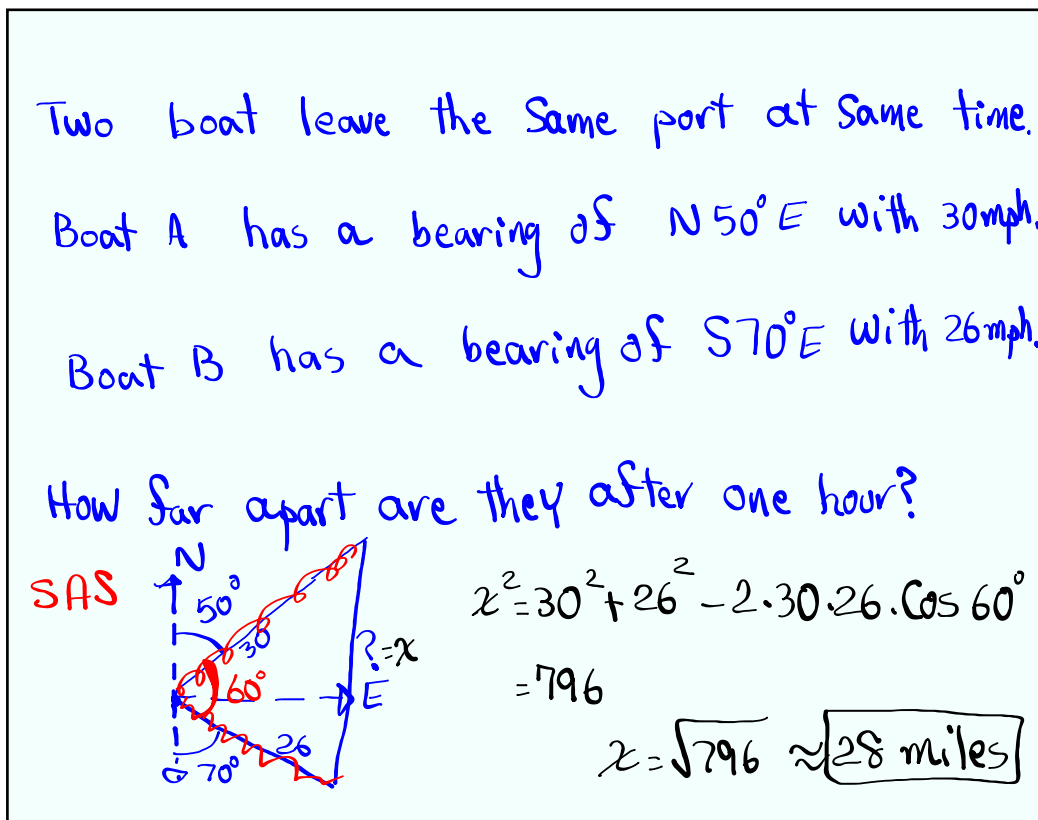 Two boat leave the Same port at Same time.
Boat A has a bearing of N50°E with 30mph.
Boat B has a bearing of S70°E with 26mph.
How far apart are they after one hour?
SAS
N
50°
30
?=x
60°
E
26
70°
x²=30²+26²-2·30·26·Cos 60°
=796
x=√796 ≈ 28 miles